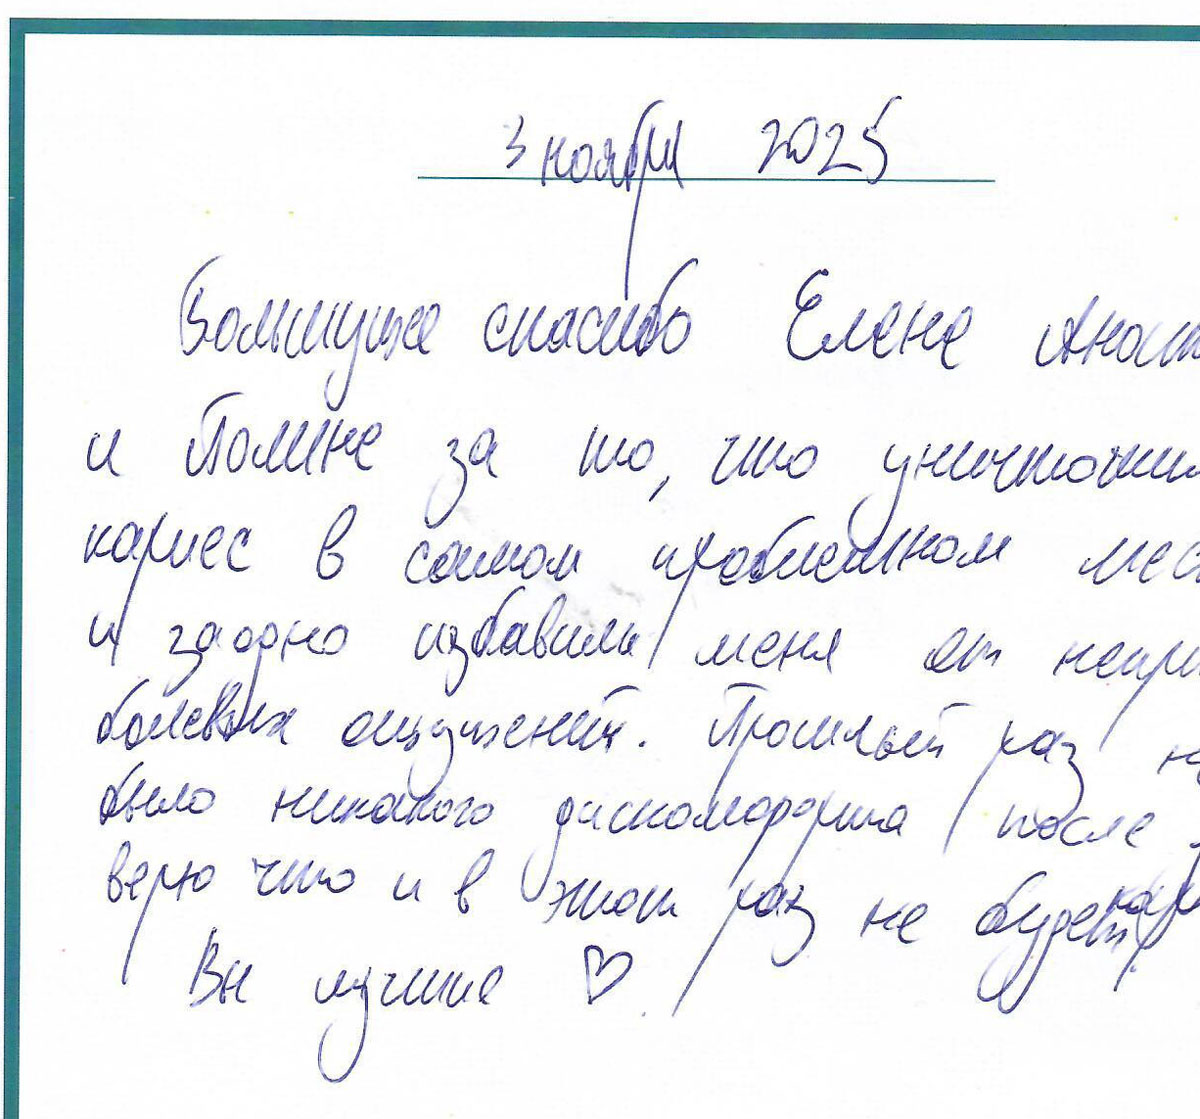 3 ноября 2025
Большущее спасибо Елене
и Полине за то, что
кариес в самом проблемном
и заодно избавили меня от
болевых ощущений. Прошлый раз
было никакого дискомфорта после
верю что и в этот раз не будет
Вы лучшие ♡